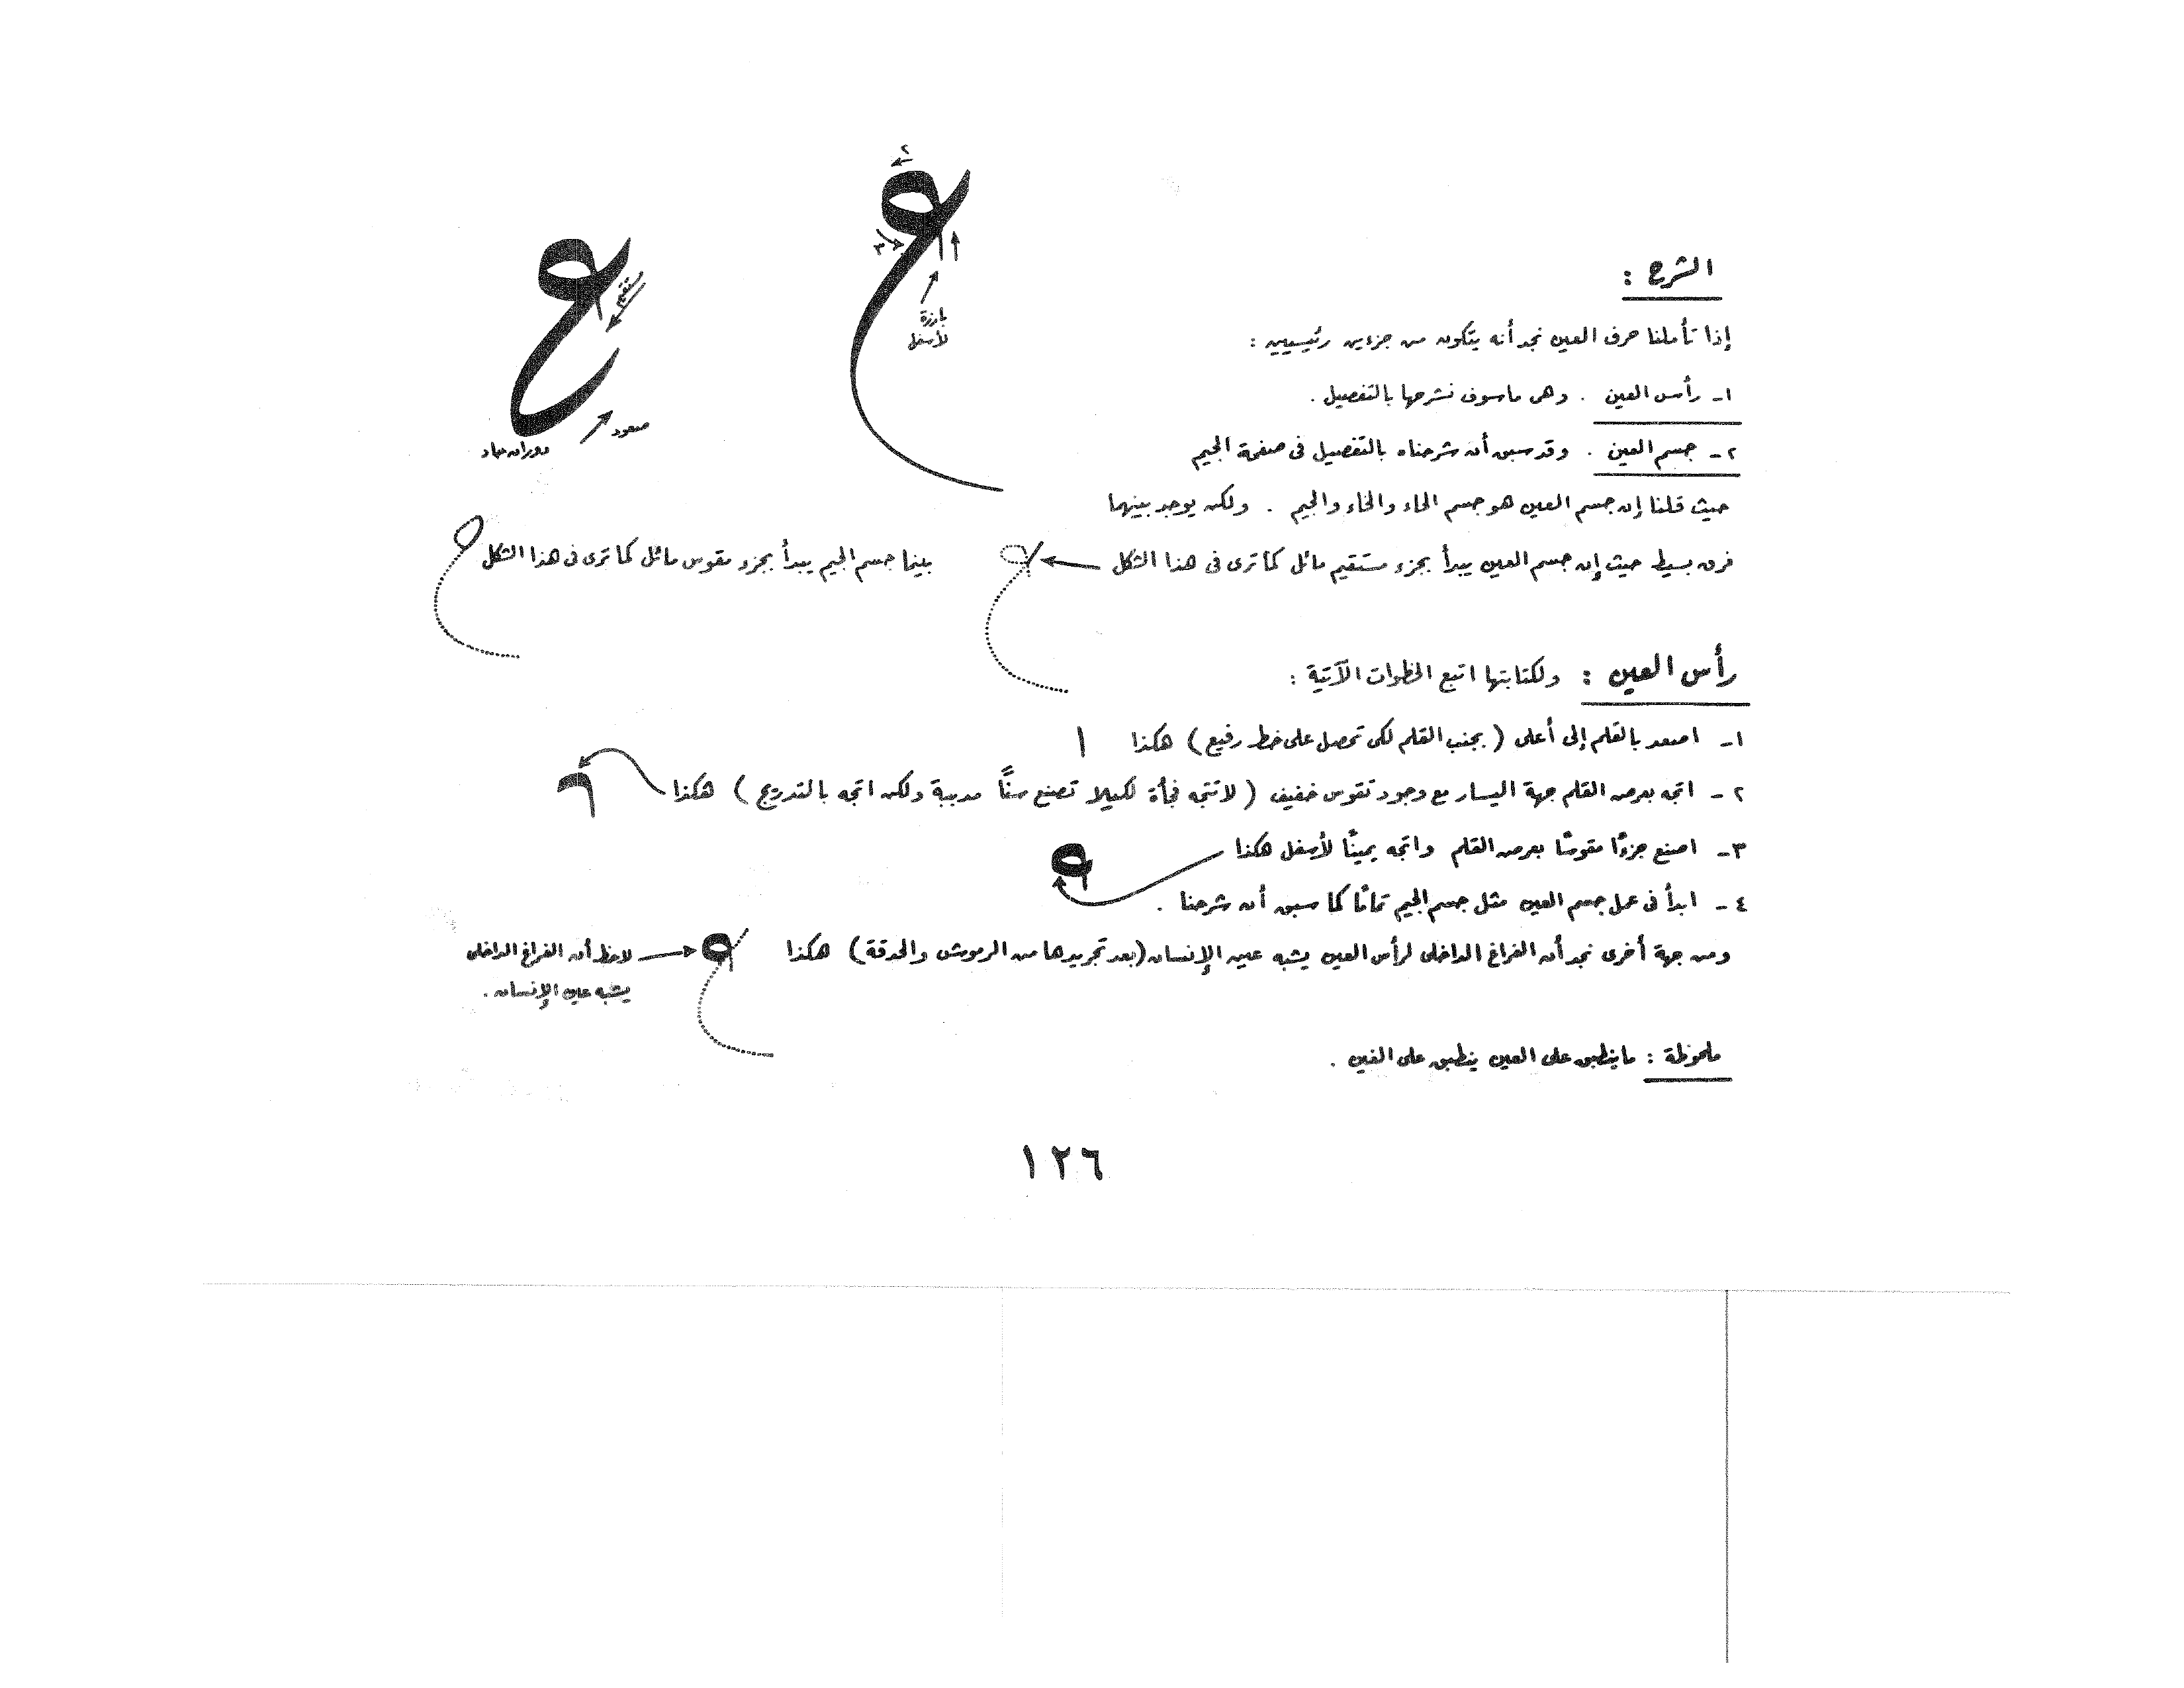 ع
ع
٢
٣
بارزة
لأسفل
مستقيم
صعود
دوران حاد
الشرح :
إذا تأملنا حرف العين نجد أنه يتكون من جزءين رئيسيين :
١- رأس العين . وهى ما سوف نشرحها بالتفصيل .
٢- جسم العين . وقد سبق أن شرحناه بالتفصيل فى صفحة الجيم
حيث قلنا إن جسم العين هو جسم الحاء والخاء والجيم . ولكن يوجد بينهما
فرق بسيط حيث إن جسم العين يبدأ بجزء مستقيم مائل كما ترى فى هذا الشكل بينما جسم الجيم يبدأ بجزء مقوس مائل كما ترى فى هذا الشكل
رأس العين : ولكتابتها اتبع الخطوات الآتية :
١- اصعد بالقلم إلى أعلى ( بجنب القلم لكى تحصل على خط رفيع ) هكذا
٢- اتجه بعرض القلم جهة اليسار مع وجود تقوس خفيف ( لا تتجه فجأة لكيلا تصنع سنًّا مدببة ولكن اتجه بالتدريج ) هكذا
٣- اصنع جزءًا مقوسًا بعرض القلم واتجه يمينًا لأسفل هكذا
٤- ابدأ فى عمل جسم العين مثل جسم الجيم تمامًا كما سبق أن شرحنا .
ومن جهة أخرى نجد أن الفراغ الداخلى لرأس العين يشبه عين الإنسان (بعد تجريدها من الرموش والحدقة) هكذا
لاحظ أن الفراغ الداخلى
يشبه عين الإنسان .
ملحوظة : ما ينطبق على العين ينطبق على الغين .
١٢٦